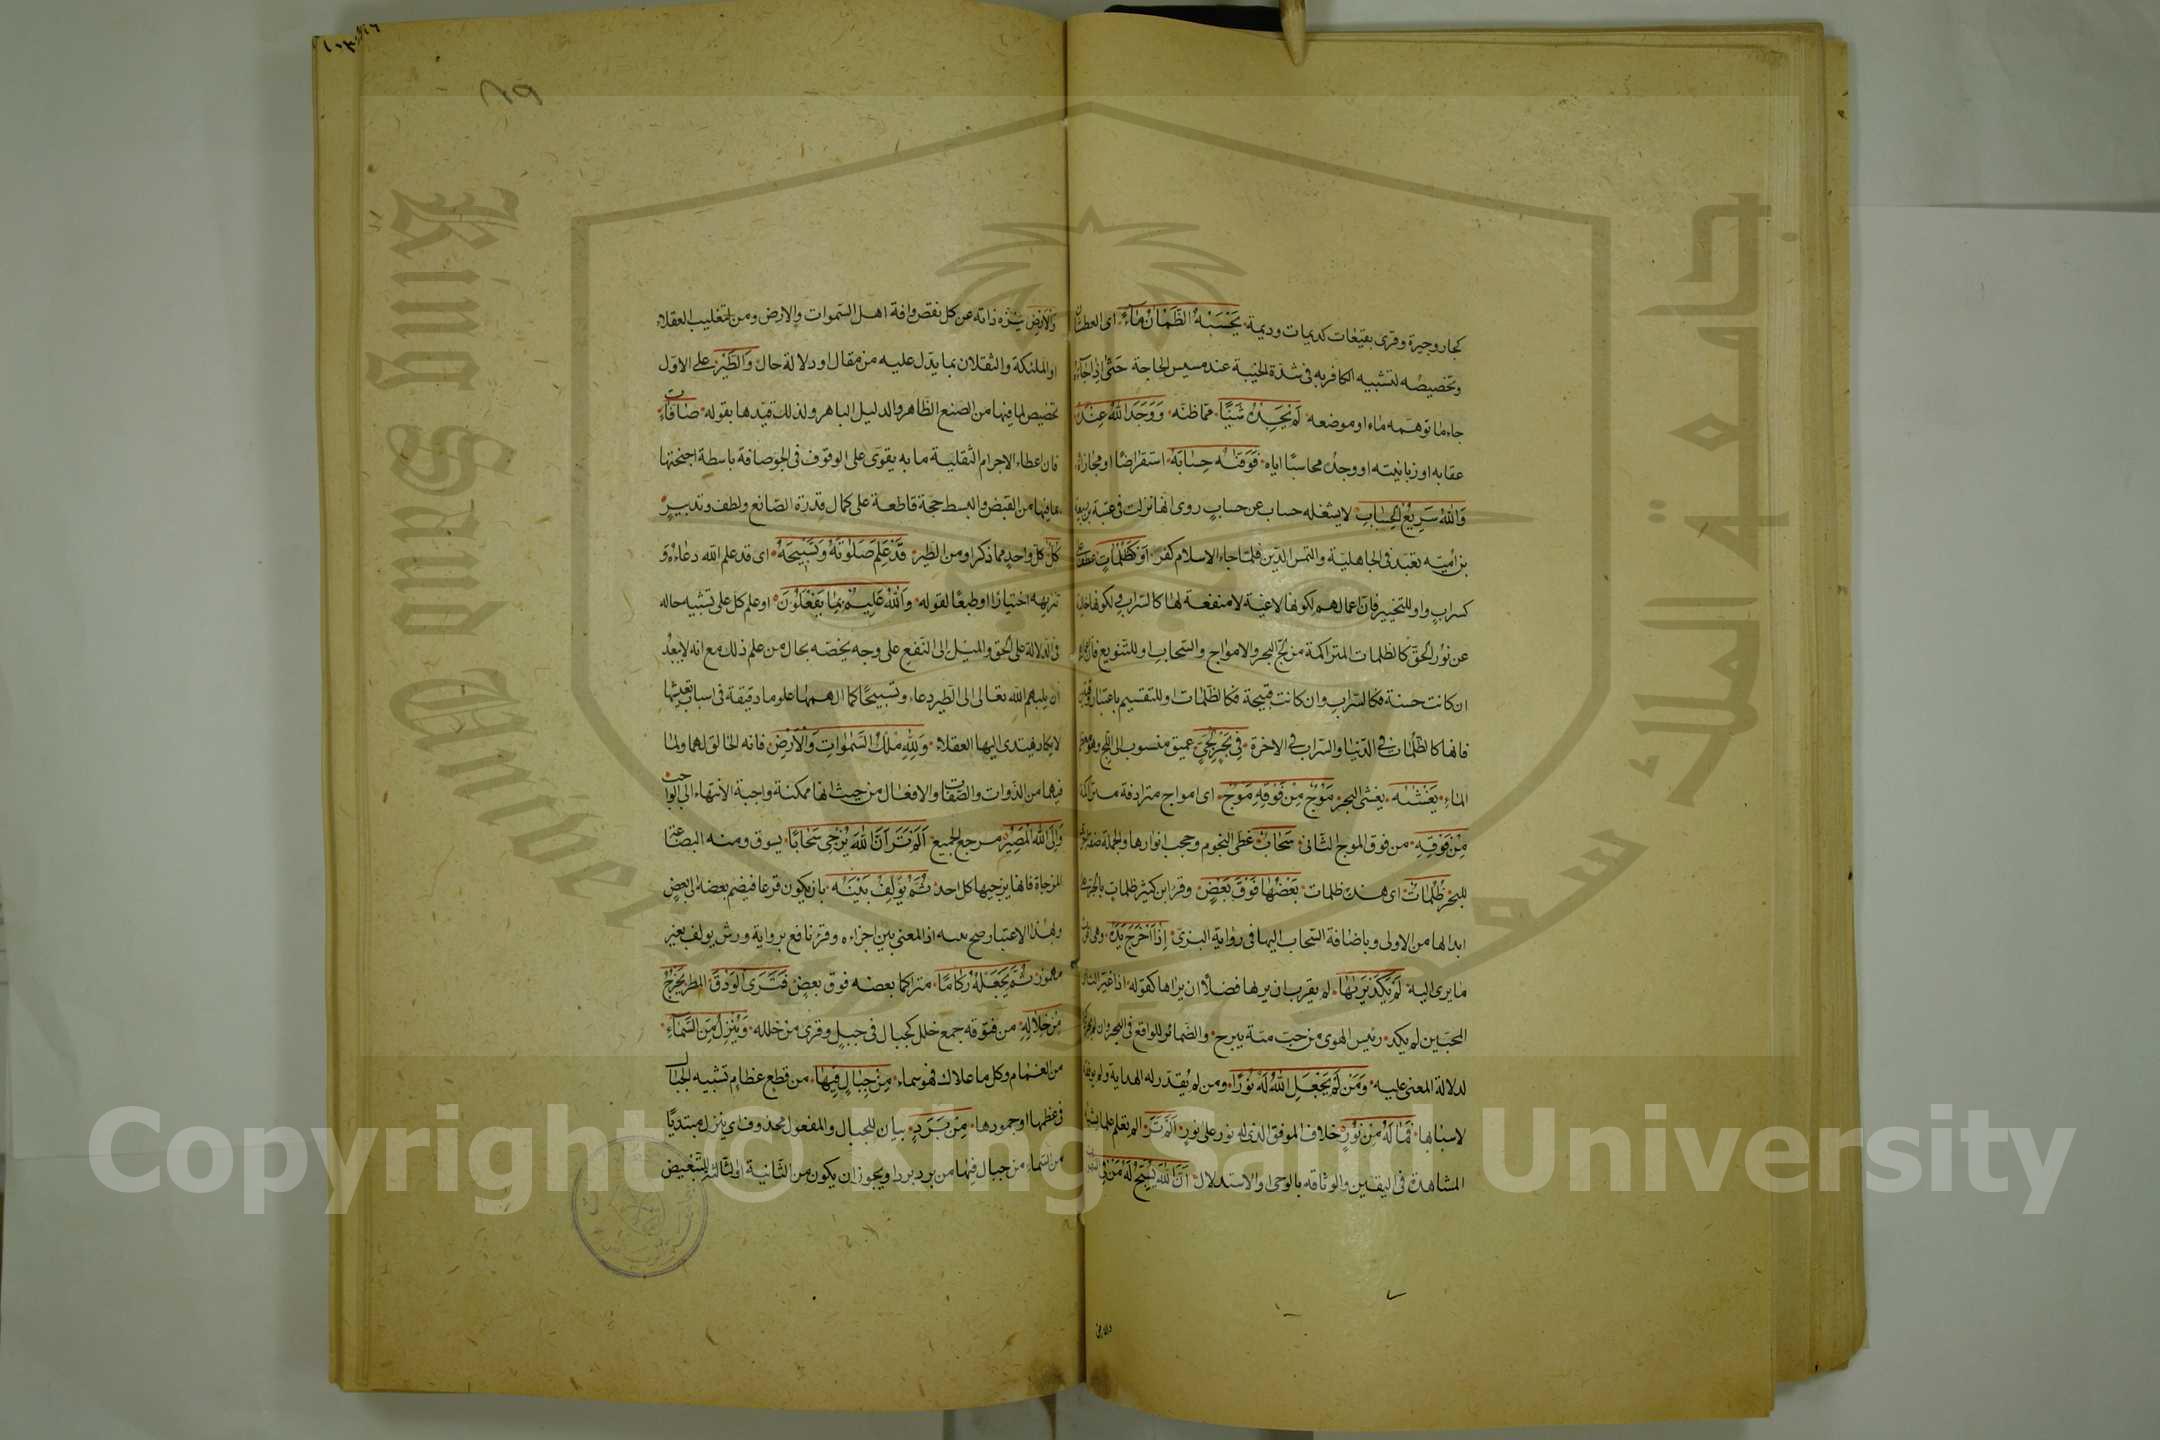 كجار وجيرة وقرئ بقيعات كديمات وديمة يَحْسَبُهُ الظَّمْاٰنُ مَاءً اى العطشان
وتخصيصه لتشبيه الكافر به فى شدة الخيبة عند مسيس الحاجة حَتّٰى اِذَا جَاءَهُ
جاء ما توهمه ماء او موضعه لَمْ يَجِدْهُ شَيْئًا مما ظنه وَوَجَدَ اللّٰهَ عِنْدَهُ
عقابه او زبانيته او وجده محاسبا اياه فَوَفّٰيهُ حِسَابَهُ استقراضا او مجازاة
وَاللّٰهُ سَرِيعُ الْحِسَابِ لا يشغله حساب عن حساب روى انها نزلت فى عتبة بن ربيعة
بن امية تعبد فى الجاهلية والتمس الدين فلما جاء الاسلام كفر اَوْ كَظُلُمَاتٍ عطف على
كسراب واو للتخيير فان اعمالهم لكونها لاغية لا منفعة لها كالسراب ولكونها خالية
عن نور الحق كالظلمات المتراكمة من لج البحر والامواج والسحاب او للتنويع فان اعمالهم
ان كانت حسنة فكالسراب وان كانت قبيحة فكالظلمات او للتقسيم باعتبار وقتين
فانها كالظلمات فى الدنيا والسراب فى الاخرة فِى بَحْرٍ لُجِّىٍّ عميق منسوب الى اللج وهو معظم
الماء يَغْشٰيهُ يغشى البحر مَوْجٌ مِنْ فَوْقِهِ مَوْجٌ اى امواج مترادفة متراكمة
مِنْ فَوْقِهِ من فوق الموج الثانى سَحَابٌ غطى النجوم وحجب انوارها والجملة صفة اخرى
للبحر ظُلُمَاتٌ اى هذه ظلمات بَعْضُهَا فَوْقَ بَعْضٍ وقرأ ابن كثير ظلمات بالجر على
ابدالها من الاولى وباضافة السحاب اليها فى رواية البزى اِذَا اَخْرَجَ يَدَهُ وهى اقرب
ما يرى اليه لَمْ يَكَدْ يَرٰيهَا لم يقرب ان يراها فضلا ان يراها كقوله اذا غير النأى
المحبين لم يكد رسيس الهوى من حب مية يبرح والضمائر للواقع فى البحر وان لم يجر ذكره
لدلالة المعنى عليه وَمَنْ لَمْ يَجْعَلِ اللّٰهُ لَهُ نُورًا ومن لم يقدر له الهداية ولم يوفقه
لاسبابها فَمَا لَهُ مِنْ نُورٍ خلاف الموفق الذى له نور على نور اَلَمْ تَرَ الم تعلم علما يشبه
المشاهدة فى اليقين والوثاقه بالوحى او الاستدلال اَنَّ اللّٰهَ يُسَبِّحُ لَهُ مَنْ فِى السموات
والارض
٨٩
وَالْاَرْضِ ينزه ذاته عن كل نقص وافة اهل السموات والارض ومن لتغليب العقلاء
او الملئكة والثقلان بما يدل عليه من مقال او دلالة حال وَالطَّيْرُ على الاول
تخصيص لما فيها من الصنع الظاهر والدليل الباهر ولذلك قيدها بقوله صَافَّاتٍ
فان اعطاء الاجرام الثقيلة ما به يقوى على الوقوف فى الجو صافة باسطة اجنحتها
بما فيها من القبض والبسط حجة قاطعة على كمال قدرة الصانع ولطف وتدبير
كُلٌّ كل واحد مما ذكر او من الطير قَدْ عَلِمَ صَلٰوتَهُ وَتَسْبِيحَهُ اى قد علم الله دعاءه و
تنزيهه اختيارا او طبعا لقوله وَاللّٰهُ عَلِيمٌ بِمَا يَفْعَلُونَ او علم كل على تشبيه حاله
فى الدلالة على الحق والميل الى النفع على وجه يخصه بحال من علم ذلك مع انه لا يبعد
ان يلهم الله تعالى الى الطير دعاء وتسبيحا كما الهمها علوما دقيقة فى اسباب تعيشها
لا يكاد يهتدى اليها العقلاء وَلِلّٰهِ مُلْكُ السَّمٰوَاتِ وَالْاَرْضِ فانه الخالق لهما ولما
فيهما من الذوات والصفات والافعال من حيث انها ممكنة واجبة الانتهاء الى الواجب
وَاِلَى اللّٰهِ الْمَصِيرُ مرجع الجميع اَلَمْ تَرَ اَنَّ اللّٰهَ يُزْجِى سَحَابًا يسوق ومنه البضاعة
المزجاة فانها يزجيها كل احد ثُمَّ يُؤَلِّفُ بَيْنَهُ بان يكون قزعا فيضم بعضه الى بعض
وبهذا الاعتبار صح بينه اذ المعنى بين اجزاءه وقرأ نافع برواية ورش يولف بغير
مهموز ثُمَّ يَجْعَلُهُ رُكَامًا متراكما بعضه فوق بعض فَتَرَى الْوَدْقَ المطر يَخْرُجُ
مِنْ خِلَالِهِ من فتوقه جمع خلل كجبال فى جبل وقرئ من خلله وَيُنَزِّلُ مِنَ السَّمَاءِ
من الغمام وكل ما علاك فهو سماء مِنْ جِبَالٍ فِيهَا من قطع عظام تشبيه الجبال
فى عظمها او جمودها مِنْ بَرَدٍ بيان للجبال والمفعول محذوف اى ينزل مبتديًا
من السماء من جبال فيها من برد بردا ويجوز ان يكون من الثانية او الثالثة للتبعيض
جامعة الملك سعود
King Saud University
Copyright © King Saud University